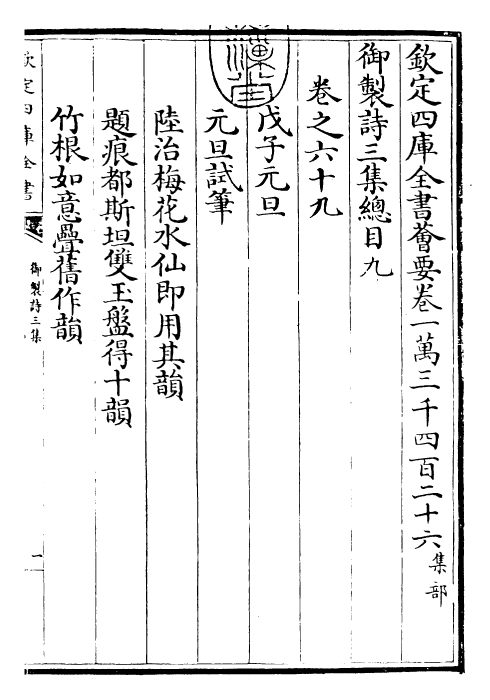 欽定四庫全書薈要卷一萬三千四百二十六集部
御製詩三集總目九
卷之六十九
戊子元旦
元旦試筆
陸治梅花水仙即用其韻
題痕都斯坦雙玉盤得十韻
竹根如意疊舊作韻
欽定四庫全書
御製詩三集
一